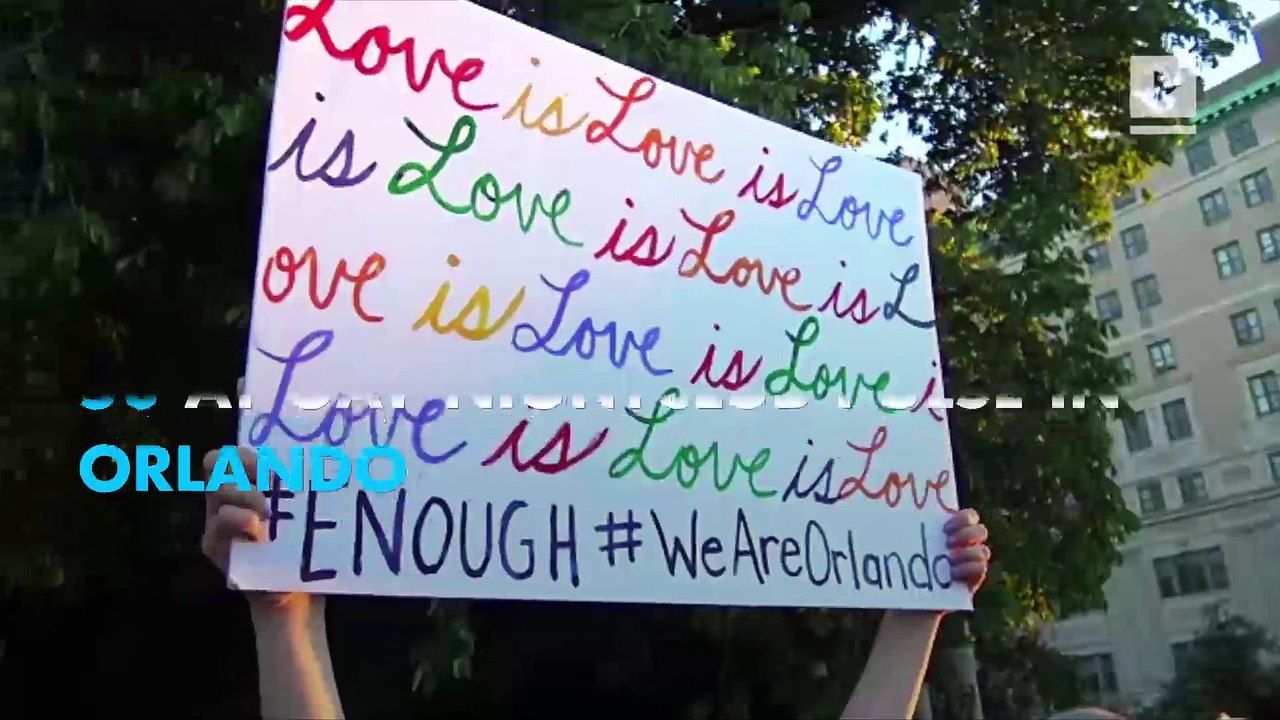 Love is Love is Love
is Love is Love is L
ove is Love is Love i
Love is Love is Love
#ENOUGH #WeAreOrlando
ORLANDO